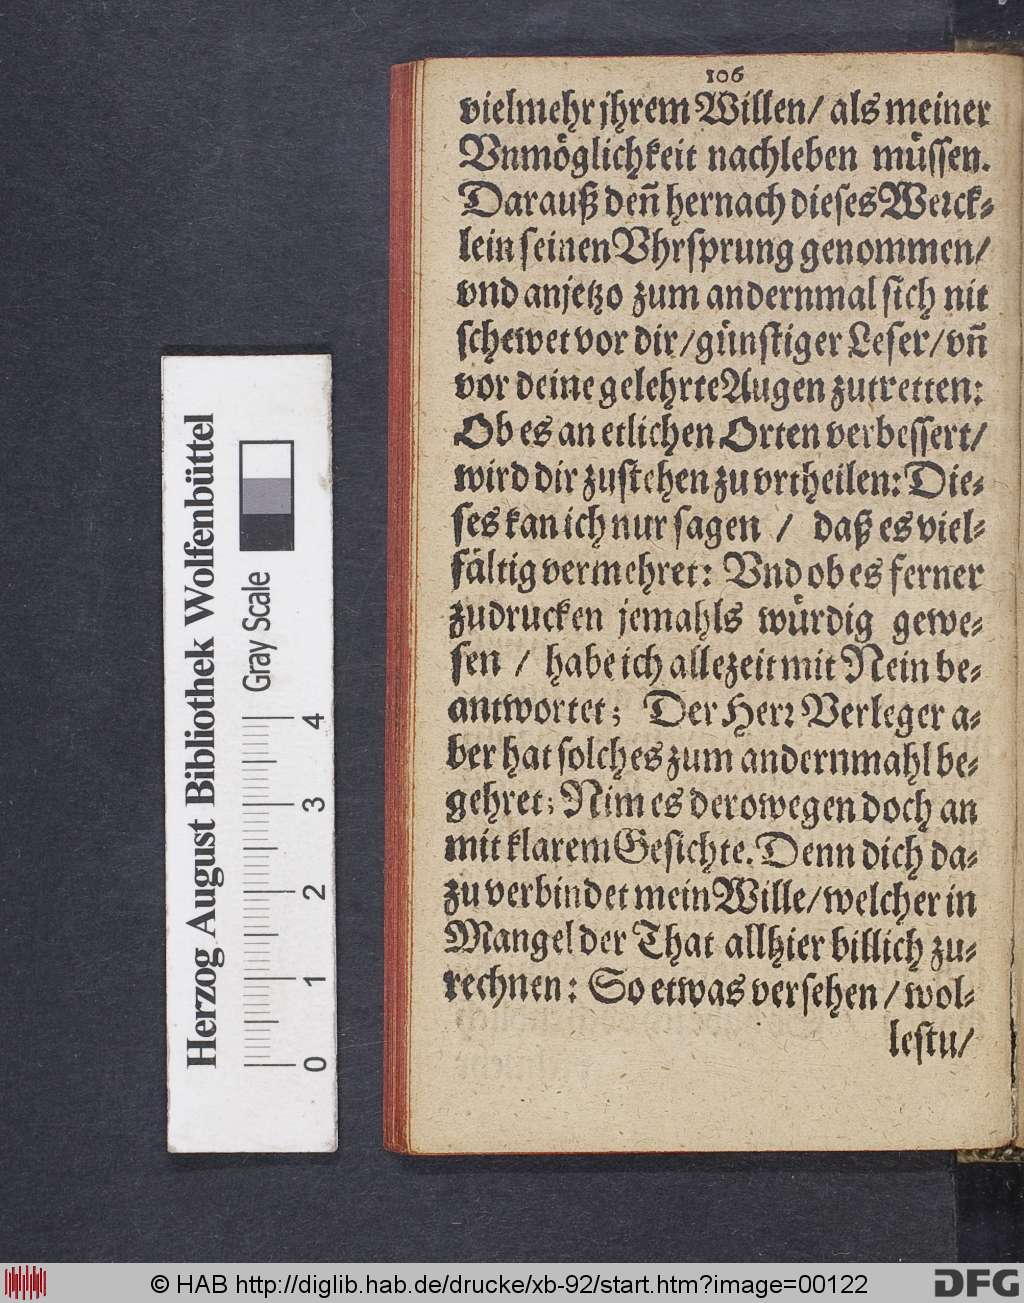 106
vielmehr jhrem Willen/ als meiner
Vnmöglichkeit nachleben müssen.
Darauß deñ hernach dieses Werck-
lein seinen Vhrsprung genommen/
vnd anjetzo zum andernmal sich nit
schewet vor dir/ günstiger Leser/ vñ
vor deine gelehrte Augen zutretten:
Ob es an etlichen Orten verbessert/
wird dir zustehen zu vrtheilen: Die-
ses kan ich nur sagen / daß es viel-
fältig vermehret: Vnd ob es ferner
zudrucken jemahls würdig gewe-
sen / habe ich allezeit mit Nein be-
antwortet; Der Herr Verleger a-
ber hat solches zum andernmahl be-
gehret; Nim es derowegen doch an
mit klarem Gesichte. Denn dich da-
zu verbindet mein Wille/ welcher in
Mangel der That allhier billich zu-
rechnen: So etwas versehen / wol-
lestu/
Herzog August Bibliothek Wolfenbüttel
Gray Scale
0 1 2 3 4
© HAB http://diglib.hab.de/drucke/xb-92/start.htm?image=00122
DFG